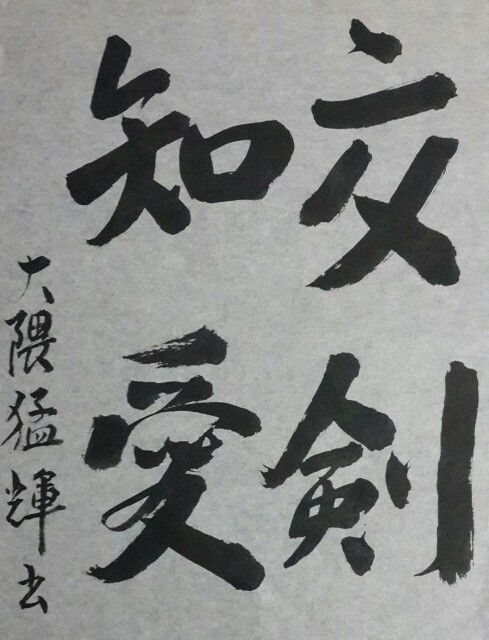 交剣
知愛
大隈猛輝書